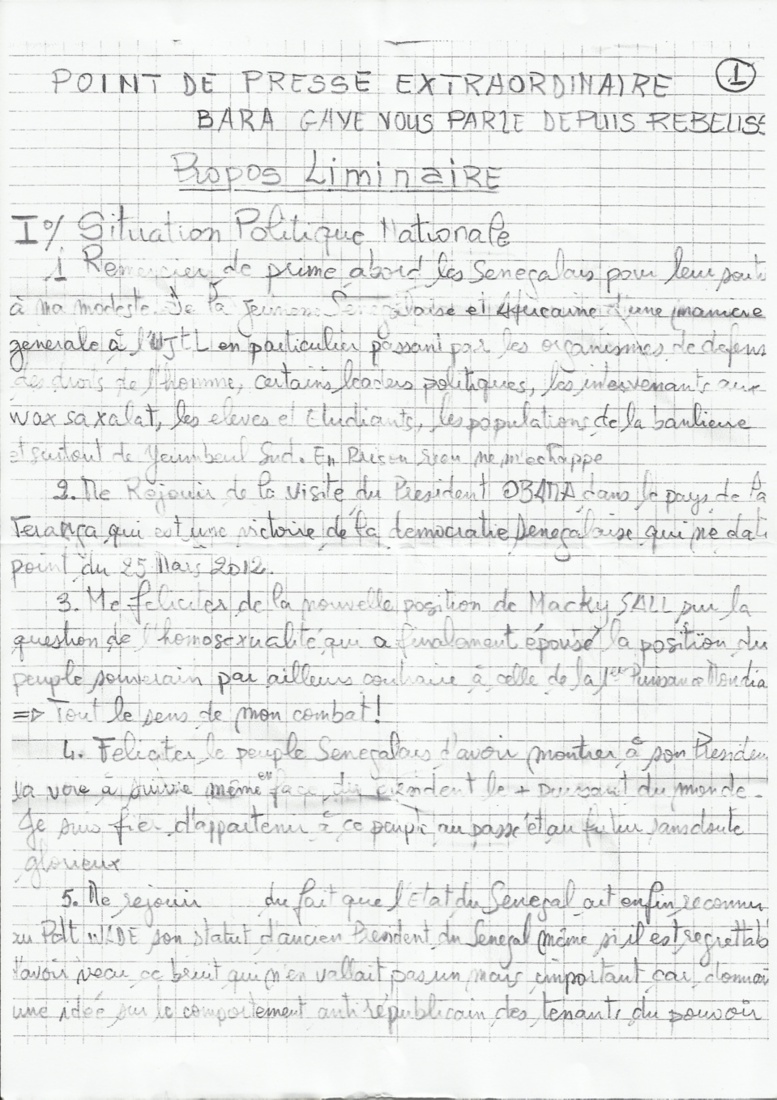 1
POINT DE PRESSE EXTRAORDINAIRE
BARA GAYE VOUS PARLE DEPUIS REBEUSS
Propos Liminaire
I°/ Situation Politique Nationale
1 Remercier de prime abord les Senegalais pour leur
à ma modeste. De la Jeunesse Senegalaise et Africaine d'une maniere
generale à l'UJTL en particulier passant par les organismes de defens
des droits de l'homme, certains leaders politiques, les intervenants aux
wax sa xalat, les eleves et Etudiants, les populations de la banlieue
et surtout de Yeumbeul Sud. En Prison rien ne m'echappe
2. Me Rejouir de la visite du President OBAMA dans le pays de la
Teranga qui est une victoire de la democratie senegalaise qui ne date
point du 25 Mars 2012.
3. Me feliciter de la nouvelle position de Macky SALL sur la
question de l'homosexualité qui a finalament épousé la position du
peuple souverain par ailleurs contraire à celle de la 1er Puissance Mondia
=> Tout le sens de mon combat!
4. Feliciter le peuple Senegalais d'avoir montrer à son Presiden
la voie à suivie même en face du président le + puissant du monde.
Je suis fier d'appartenir à ce peuple au passé et au futur sans doute
glorieux
5. Me rejouir du fait que l'Etat du Senegal ait enfin reconnu
au Pdt WADE son statut d'ancien President du Senegal même si il est regrettab
d'avoir vecu ce bruit qui n'en vallait pas un mais important car donnai
une idée sur le comportement anti républicain des tenants du pouvoir